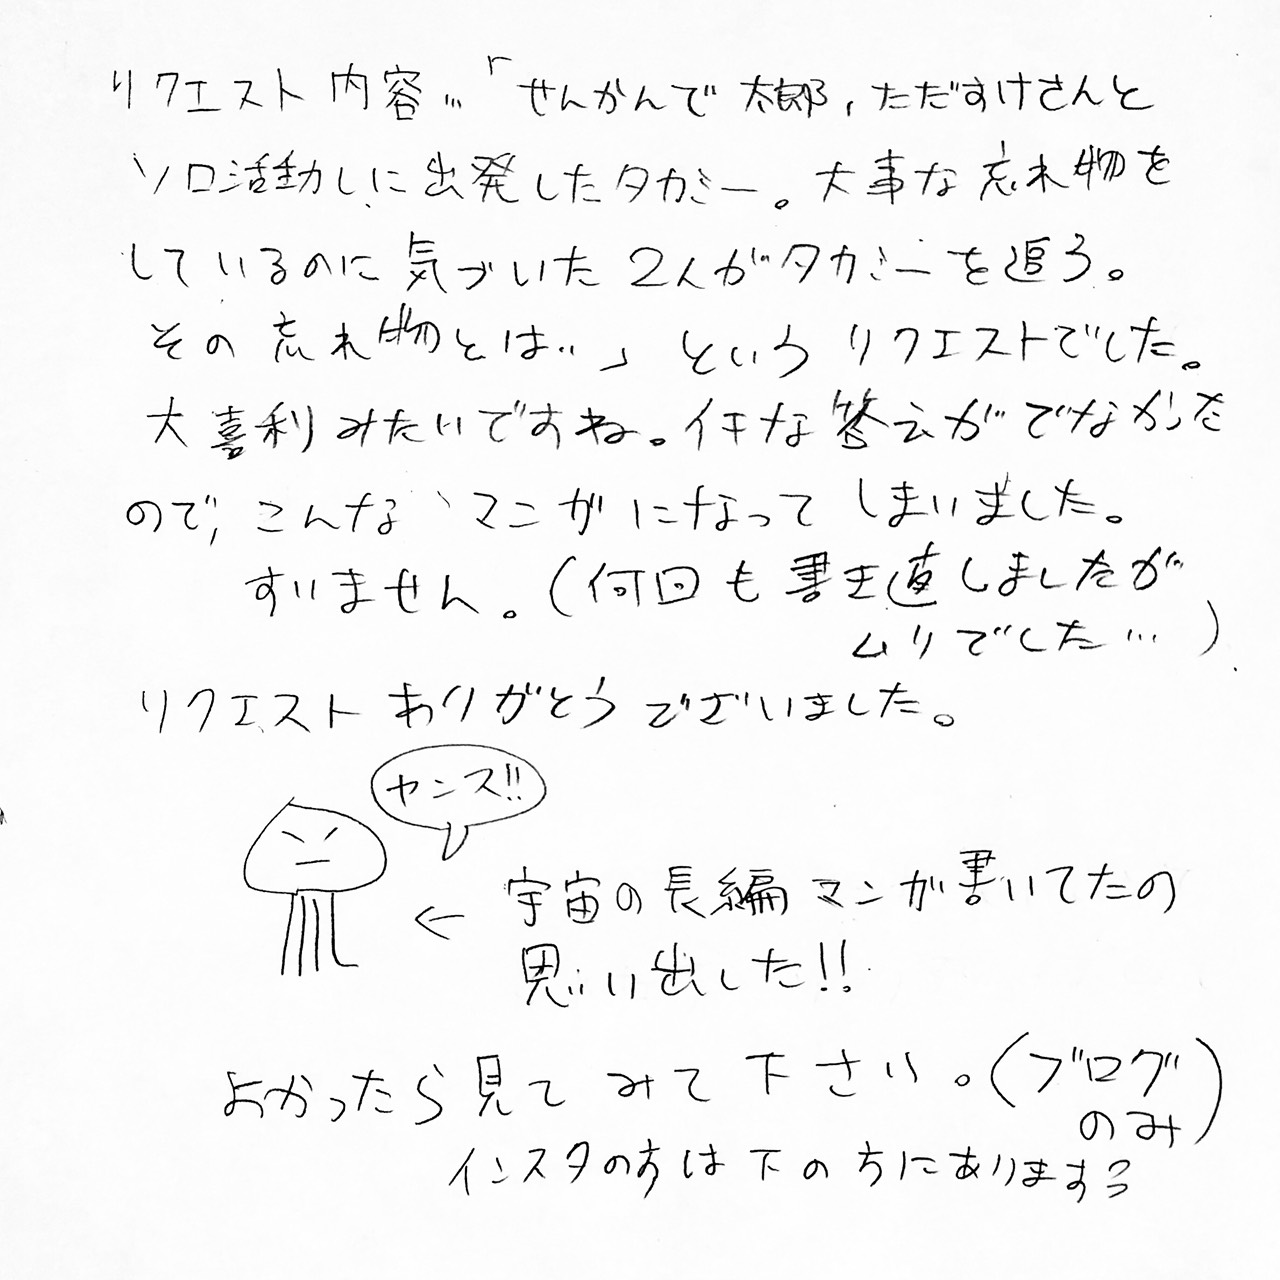 リクエスト内容…「せんかんで太郎，ただすけさんと
ソロ活動しに出発したタカミー。大事な忘れ物を
しているのに気づいた2人がタカミーを追う。
その忘れ物とは…」というリクエストでした。
大喜利みたいですね。イキな答えがでなかった
ので，こんなマンガになってしまいました。
すいません。（何回も書き直しましたが
ムリでした…）
リクエストありがとうございました。
ヤンス!!
← 宇宙の長編マンガ書いてたの
思い出した!!
よかったら見てみて下さい。（ブログ
のみ）
インスタの方は下の方にあります